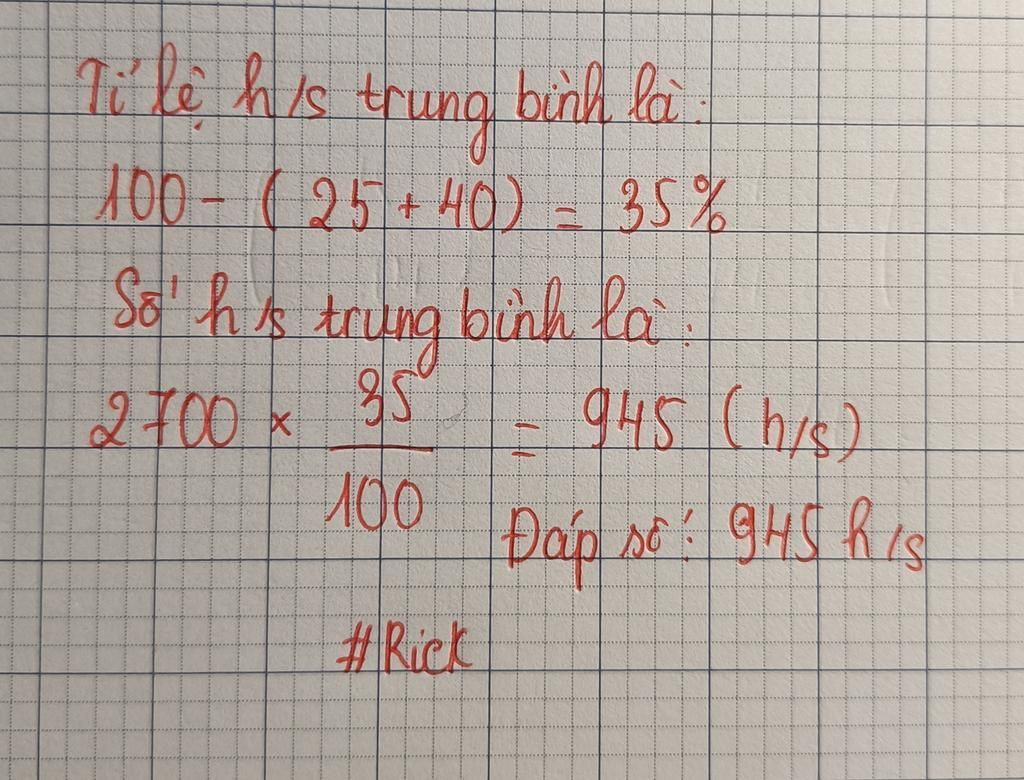 Tỉ lệ h/s trung bình là:
100 - ( 25 + 40 ) = 35%
Số h/s trung bình là:
2700 × 35/100 = 945 (h/s)
Đáp số: 945 h/s
#Rick